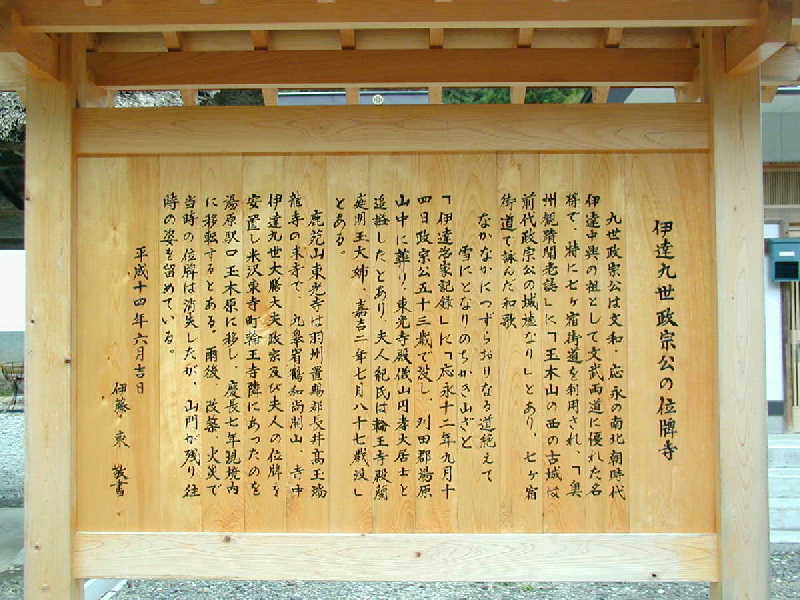 伊達九世政宗公の位牌寺
九世政宗公は文和、応永の南北朝時代
伊達中興の祖として文武両道に優れた名
将で、特に七ヶ宿街道を利用され、「奥
州観蹟聞老誌」に「玉木山の西の古城は
前代政宗公の城墟なり」とあり、七ヶ宿
街道で詠んだ和歌
なかなかにつずらおりなる道絶えて
雪にとなりのちかき山ざと
「伊達治家記録」に「応永十二年九月十
四日政宗公五十三歳で歿し、刈田郡湯原
山中に葬り、東光寺殿儀山円孝大居士と
追謚したとあり、夫人紀氏は輪王寺殿蘭
庭明玉大姉、嘉吉二年七月八十七歳没」
とある。
鹿苑山東光寺は羽州置賜郡長井高玉瑞
龍寺の末寺で、九皐省鶴和尚開山、寺中
伊達九世大膳大夫政宗及び夫人の位牌を
安置し米沢東寺町輪王寺隣にあったのを
湯原駅口玉木原に移し、慶長七年現境内
に移転するとある。爾後、改築、火災で
当時の位牌は消失したが、山門が残り往
時の姿を留めている。
平成十四年六月吉日
伊藤 東 書